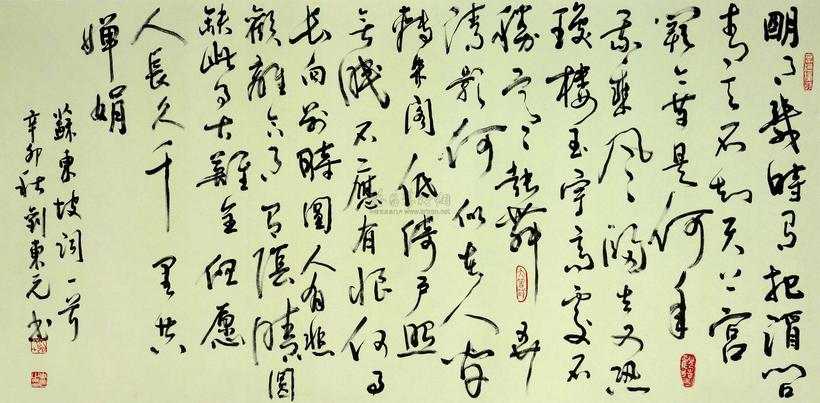 明月幾時有把酒問
青天不知天上宮
闕今昔是何年
我欲乘風歸去又恐
瓊樓玉宇高處不
勝寒起舞弄
清影何似在人間
轉朱閣低綺戶照
無眠不應有恨何事
長向別時圓人有悲
歡離合月有陰晴圓
缺此事古難全但願
人長久千里共
嬋娟
蘇東坡詞一首
辛卯秋劉東元書